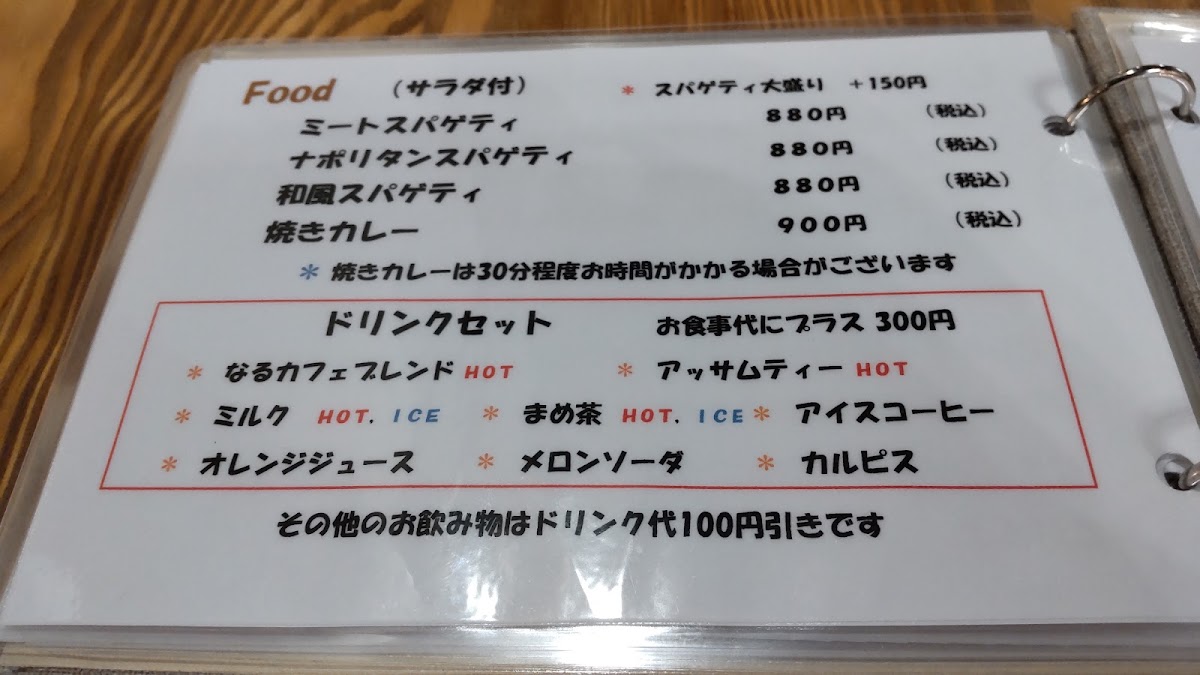 Food （サラダ付） * スパゲティ大盛り +150円
ミートスパゲティ 880円 （税込）
ナポリタンスパゲティ 880円 （税込）
和風スパゲティ 880円 （税込）
焼きカレー 900円 （税込）
* 焼きカレーは30分程度お時間がかかる場合がございます
ドリンクセット お食事代にプラス 300円
* なるカフェブレンド HOT * アッサムティー HOT
* ミルク HOT. ICE * まめ茶 HOT. ICE * アイスコーヒー
* オレンジジュース * メロンソーダ * カルピス
その他のお飲み物はドリンク代100円引きです